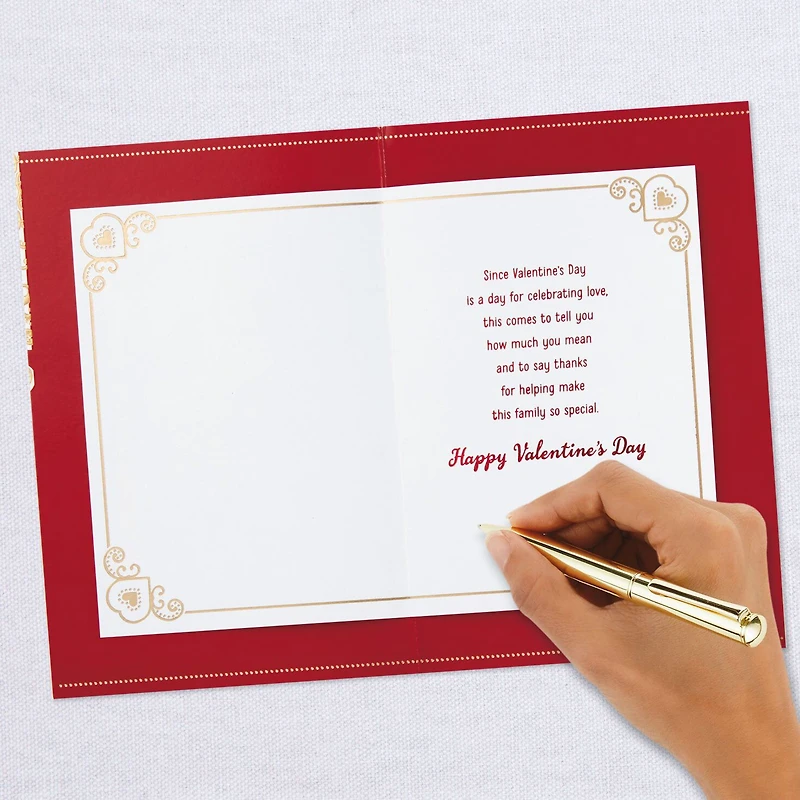 Since Valentine's Day
is a day for celebrating love,
this comes to tell you
how much you mean
and to say thanks
for helping make
this family so special.
Happy Valentine's Day